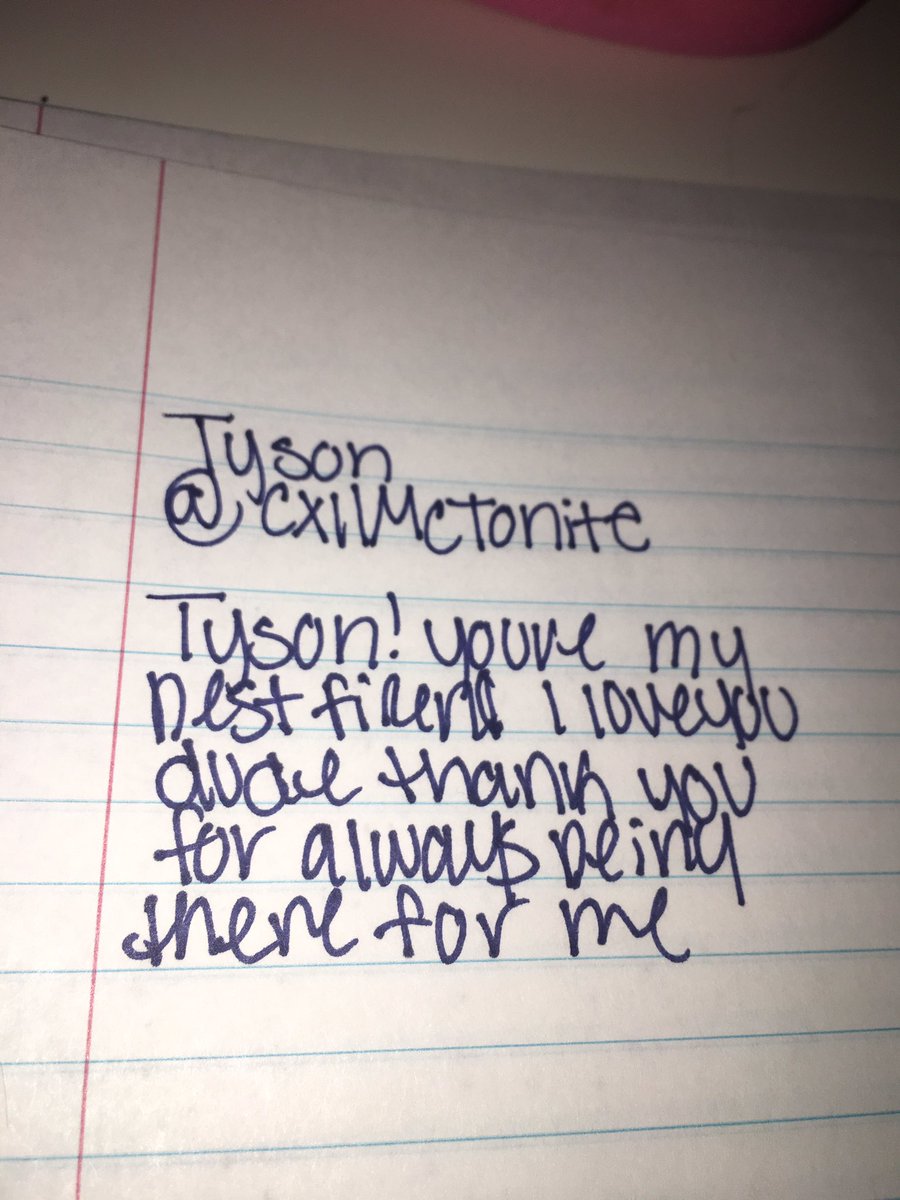 Tyson
@CXllMcTonite
Tyson! youre my
best friend I love you
dude thank you
for always being
there for me